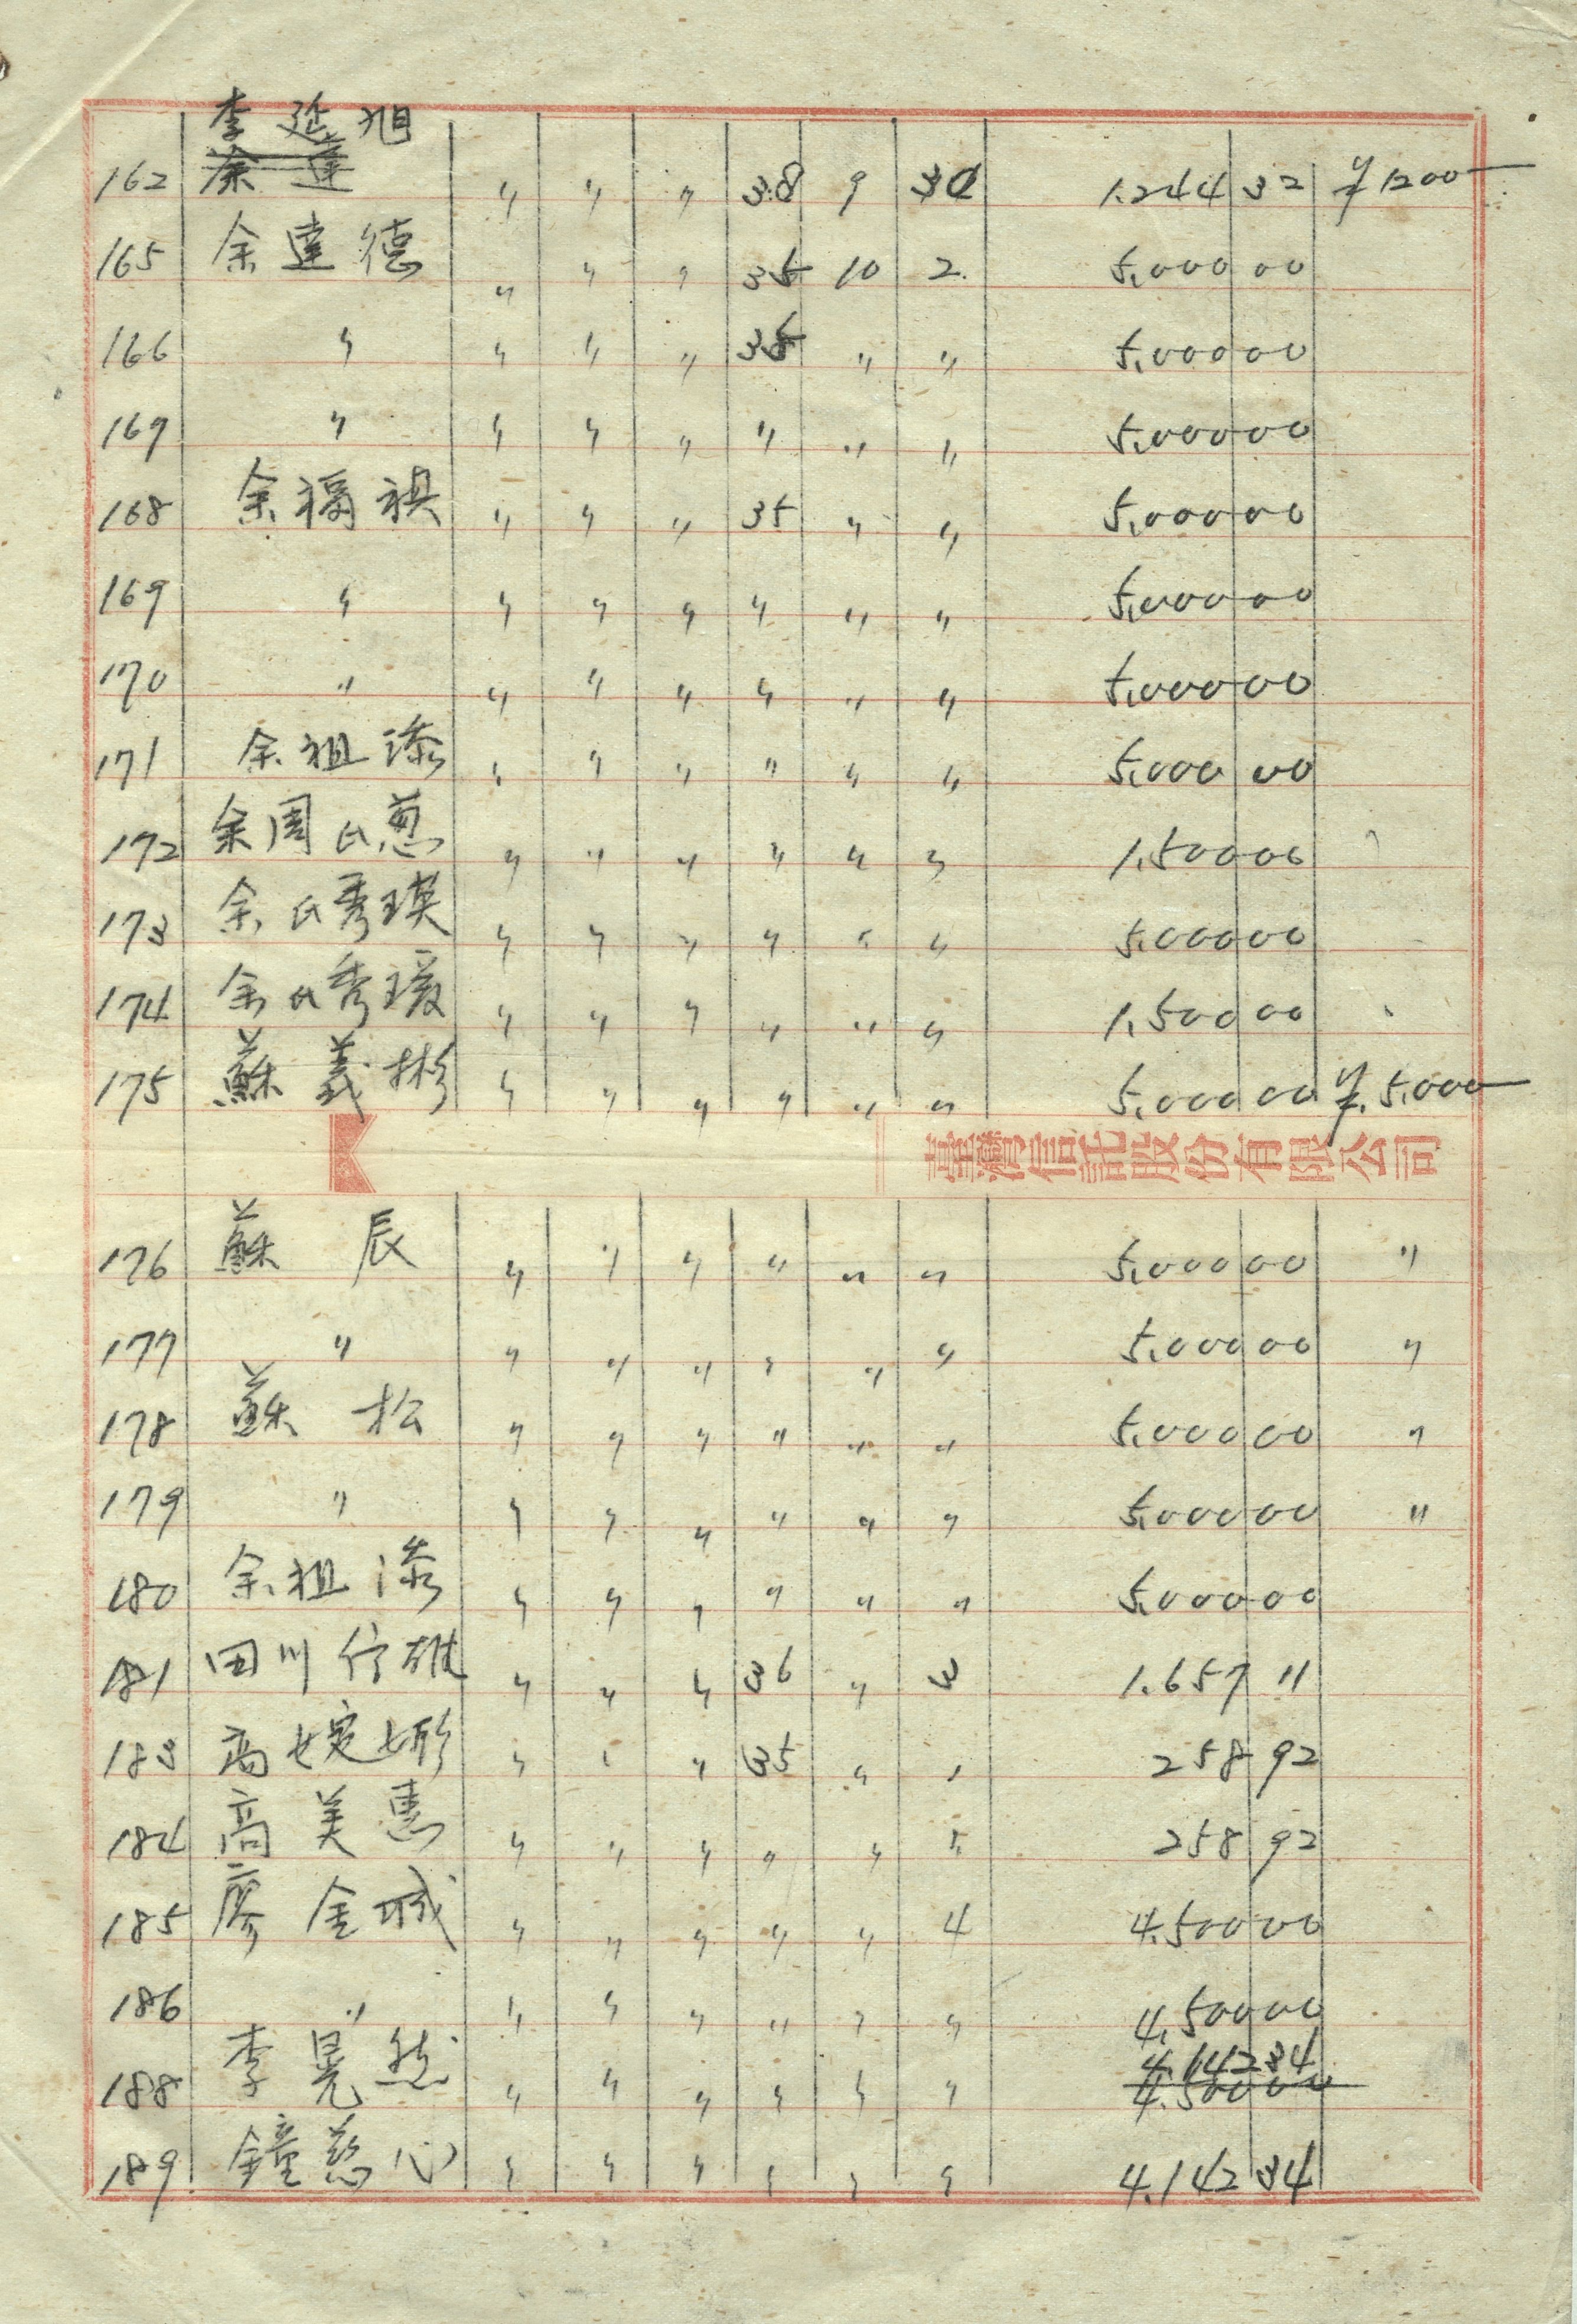 李延旭
162 余達 〃 〃 〃 38 9 30 1.244 32 ¥1200
165 余達德 〃 〃 〃 35 10 2. 5,000 00
166 〃 〃 〃 〃 35 〃 〃 5,000 00
169 〃 〃 〃 〃 〃 〃 〃 5,000 00
168 余福祺 〃 〃 〃 35 〃 〃 5,000 00
169 〃 〃 〃 〃 〃 〃 〃 5,000 00
170 〃 〃 〃 〃 〃 〃 〃 5,000 00
171 余祖添 〃 〃 〃 〃 〃 〃 5,000 00
172 余周氏葱 〃 〃 〃 〃 〃 〃 1,500 00
173 余氏秀瑛 〃 〃 〃 〃 〃 〃 5,000 00
174 余氏秀瑗 〃 〃 〃 〃 〃 〃 1,500 00
175 蘇義彬 〃 〃 〃 〃 〃 〃 5,000 00 ¥5,000
臺灣信託股份有限公司
176 蘇辰 〃 〃 〃 〃 〃 〃 5,000 00 〃
177 〃 〃 〃 〃 〃 〃 〃 5,000 00 〃
178 蘇松 〃 〃 〃 〃 〃 〃 5,000 00 〃
179 〃 〃 〃 〃 〃 〃 〃 5,000 00 〃
180 余祖添 〃 〃 〃 〃 〃 〃 5,000 00
181 田川信雄 〃 〃 〃 36 〃 3 1.657 11
183 高 〃 〃 〃 35 〃 〃 258 92
184 高美惠 〃 〃 〃 〃 〃 〃 258 92
185 廖金城 〃 〃 〃 〃 〃 4 4.500 00
186 〃 〃 〃 〃 〃 〃 〃 4,500 00
4,142 34
188 李晃然 〃 〃 〃 〃 〃 〃 4.500 00
189 鐘慈心 〃 〃 〃 〃 〃 〃 4.142 34